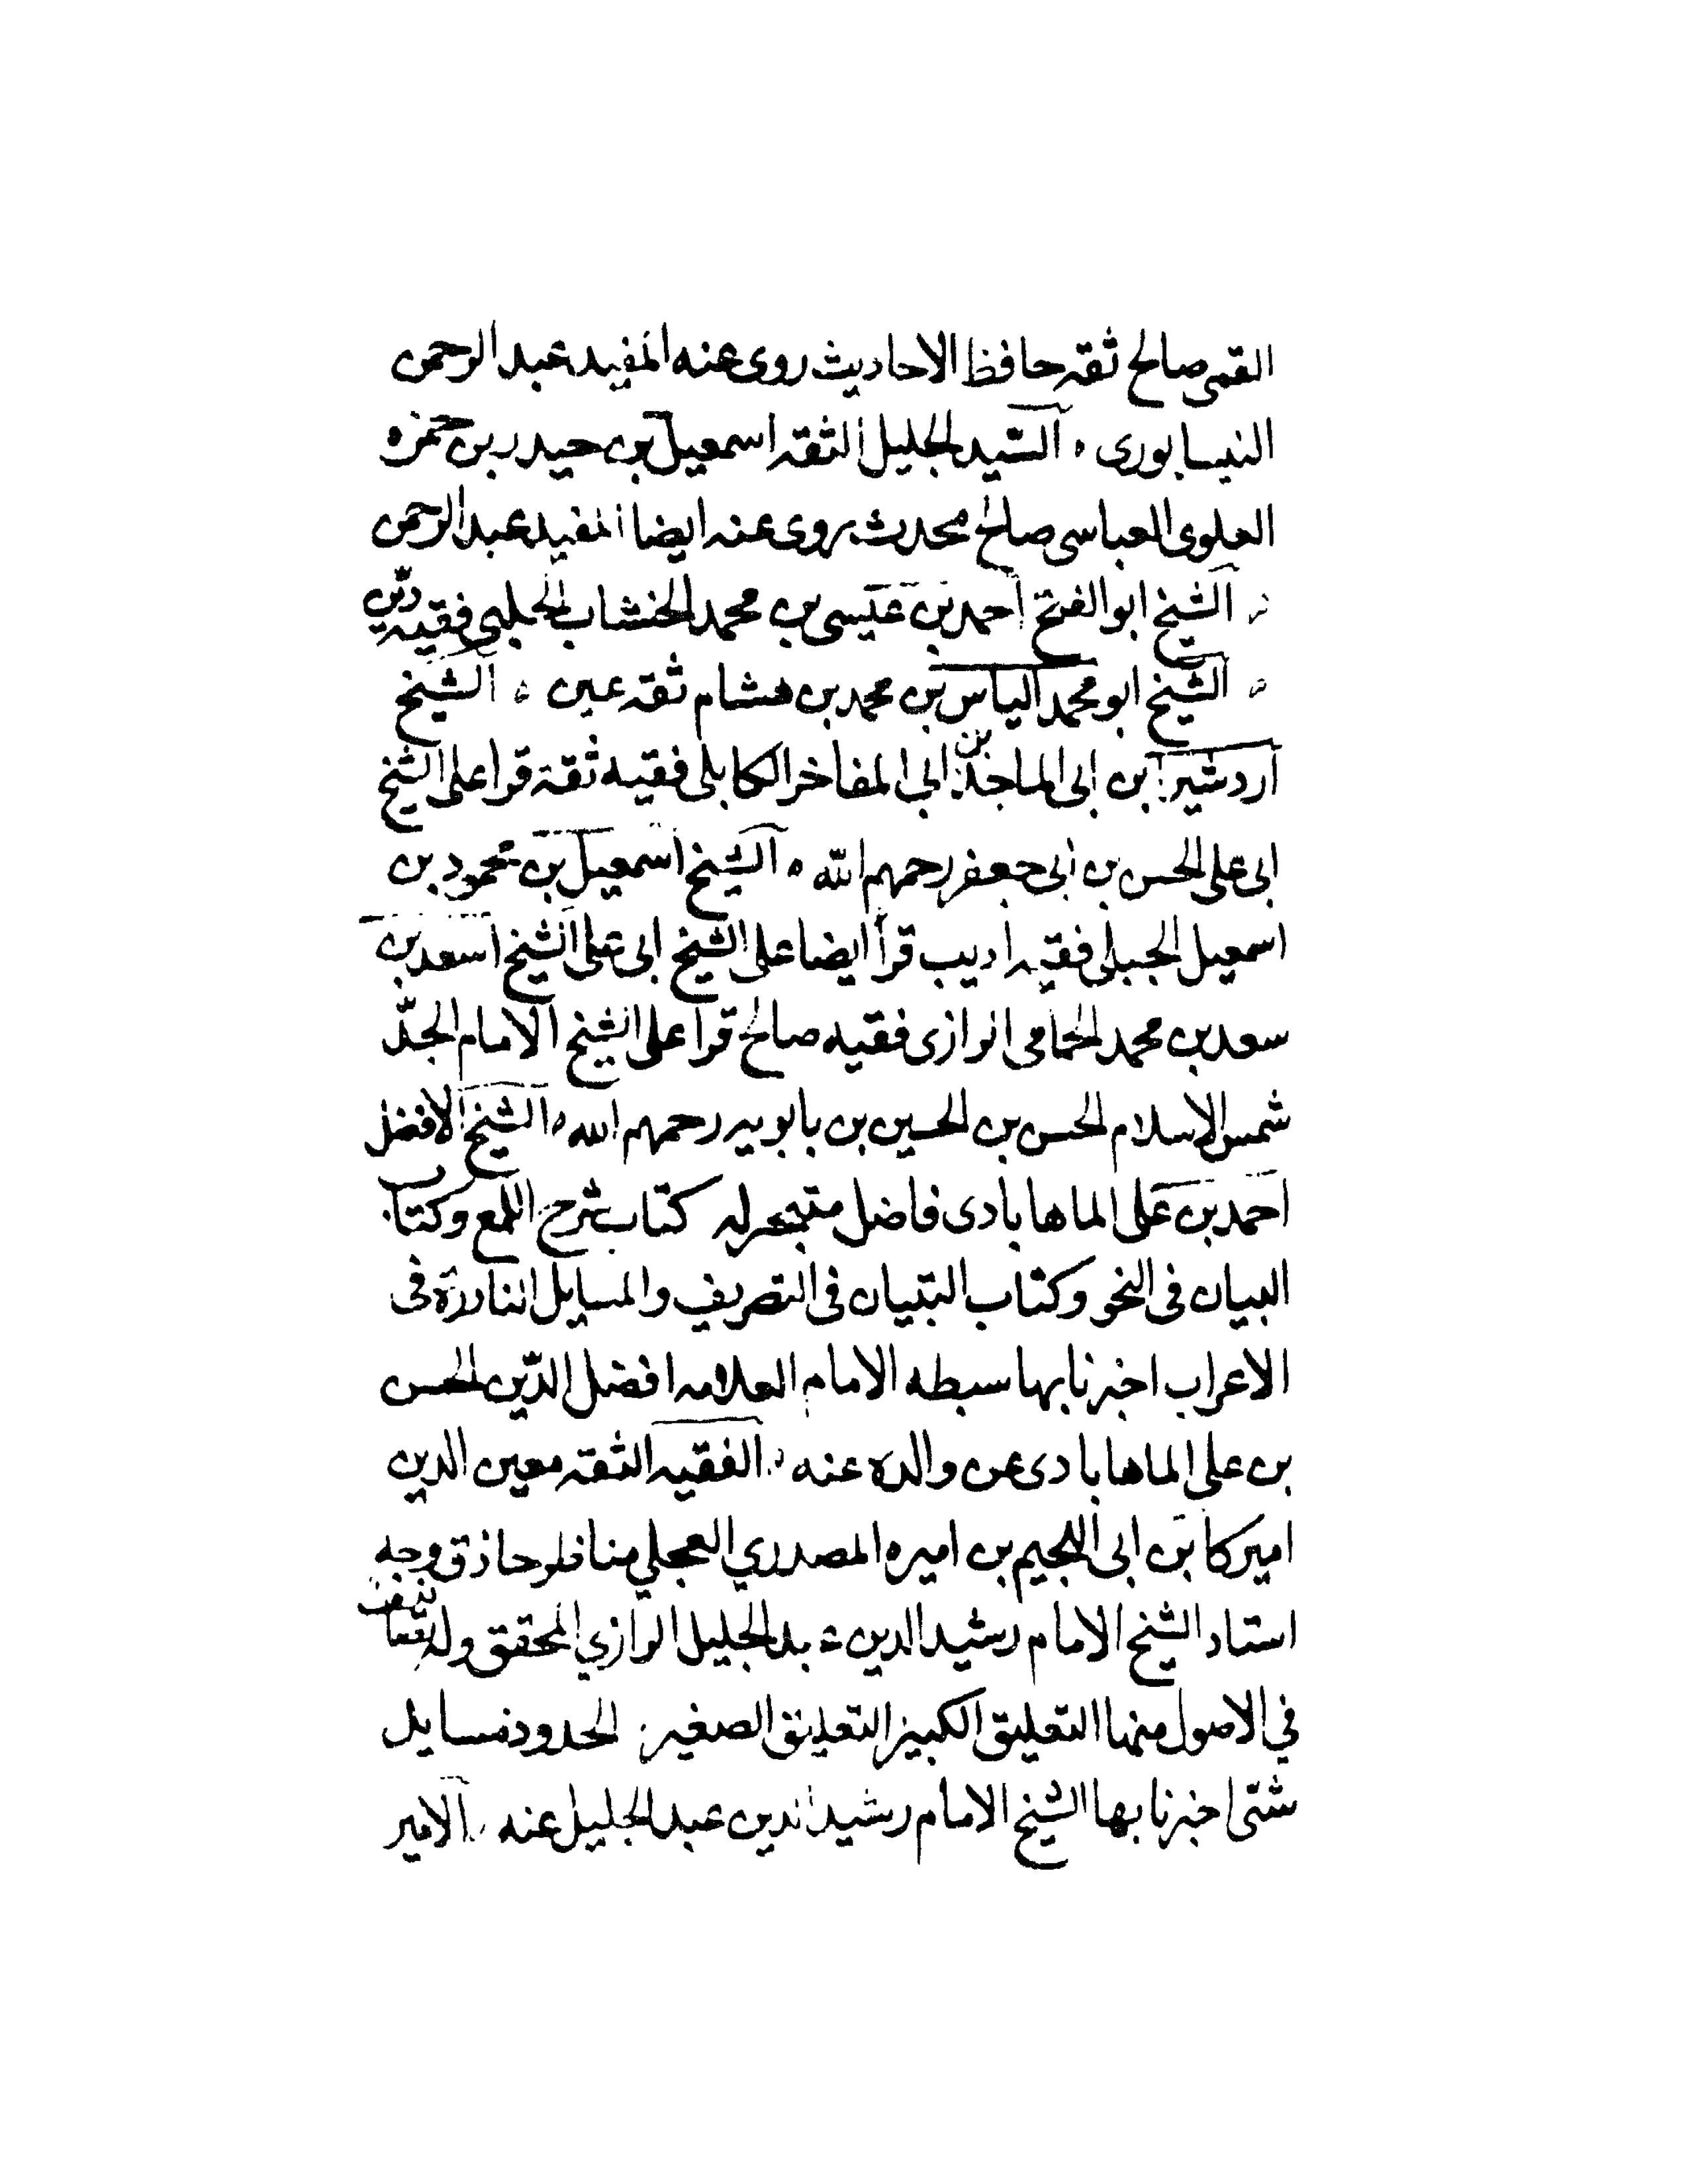 القمى صالح ثقه حافظ الاحاديث روى عنه المفيد عبد الرحمن
النيسابورى ه السيد الجليل الثقه اسمعيل بن حيدر بن حمزه
العلوى العباسى صالح محدث روى عنه ايضا المفيد عبد الرحمن
ه الشيخ ابو الفتح احمد بن عيسى بن محمد الخشاب الحلبى فقيه دين
ه الشيخ ابو محمد الياس بن محمد بن هشام ثقه عين ه الشيخ
اردشير بن ابى الماجد بن ابى المفاخر الكابلى فقيه ثقة قرا على الشيخ
ابى على الحسن بن ابى جعفر رحمهم الله ه الشيخ اسمعيل بن محمود بن
اسمعيل الجبلى فقيه اديب قرأ ايضا على الشيخ ابى على الشيخ اسعد بن
سعد بن محمد الحمامى الرازى فقيه صالح قرا على الشيخ الامام الجدّ
شمس الاسلام الحسن بن الحسين بن بابويه رحمهم الله ه الشيخ الافضل
احمد بن على الماهابادى فاضل متبحر له كتاب شرح اللمع وكتاب
البيان فى النحو وكتاب التبيان فى التصريف والمسايل النادرة فى
الاعراب اخبرنا بها سبطه الامام العلامه افضل الدّين الحسن
بن على الماهابادى عن والده عنه ه الفقيه الثقه معين الدين
اميركا بن ابى اللجيم بن اميره المصدري العجلي مناظر حاذق وجه
استاد الشيخ الامام رشيد الدين عبد الجليل الرازي المحقق وله تصانيف
في الاصول منها التعليق الكبير التعليق الصغير الحدود مسايل
شتى اخبرنا بها الشيخ الامام رشيد الدين عبد الجليل عنه الامير